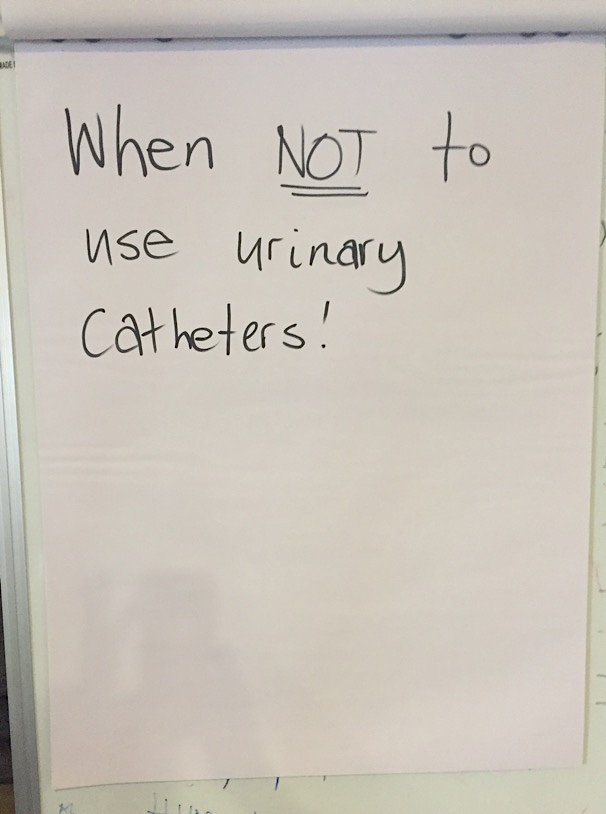 When NOT to
use urinary
Catheters!